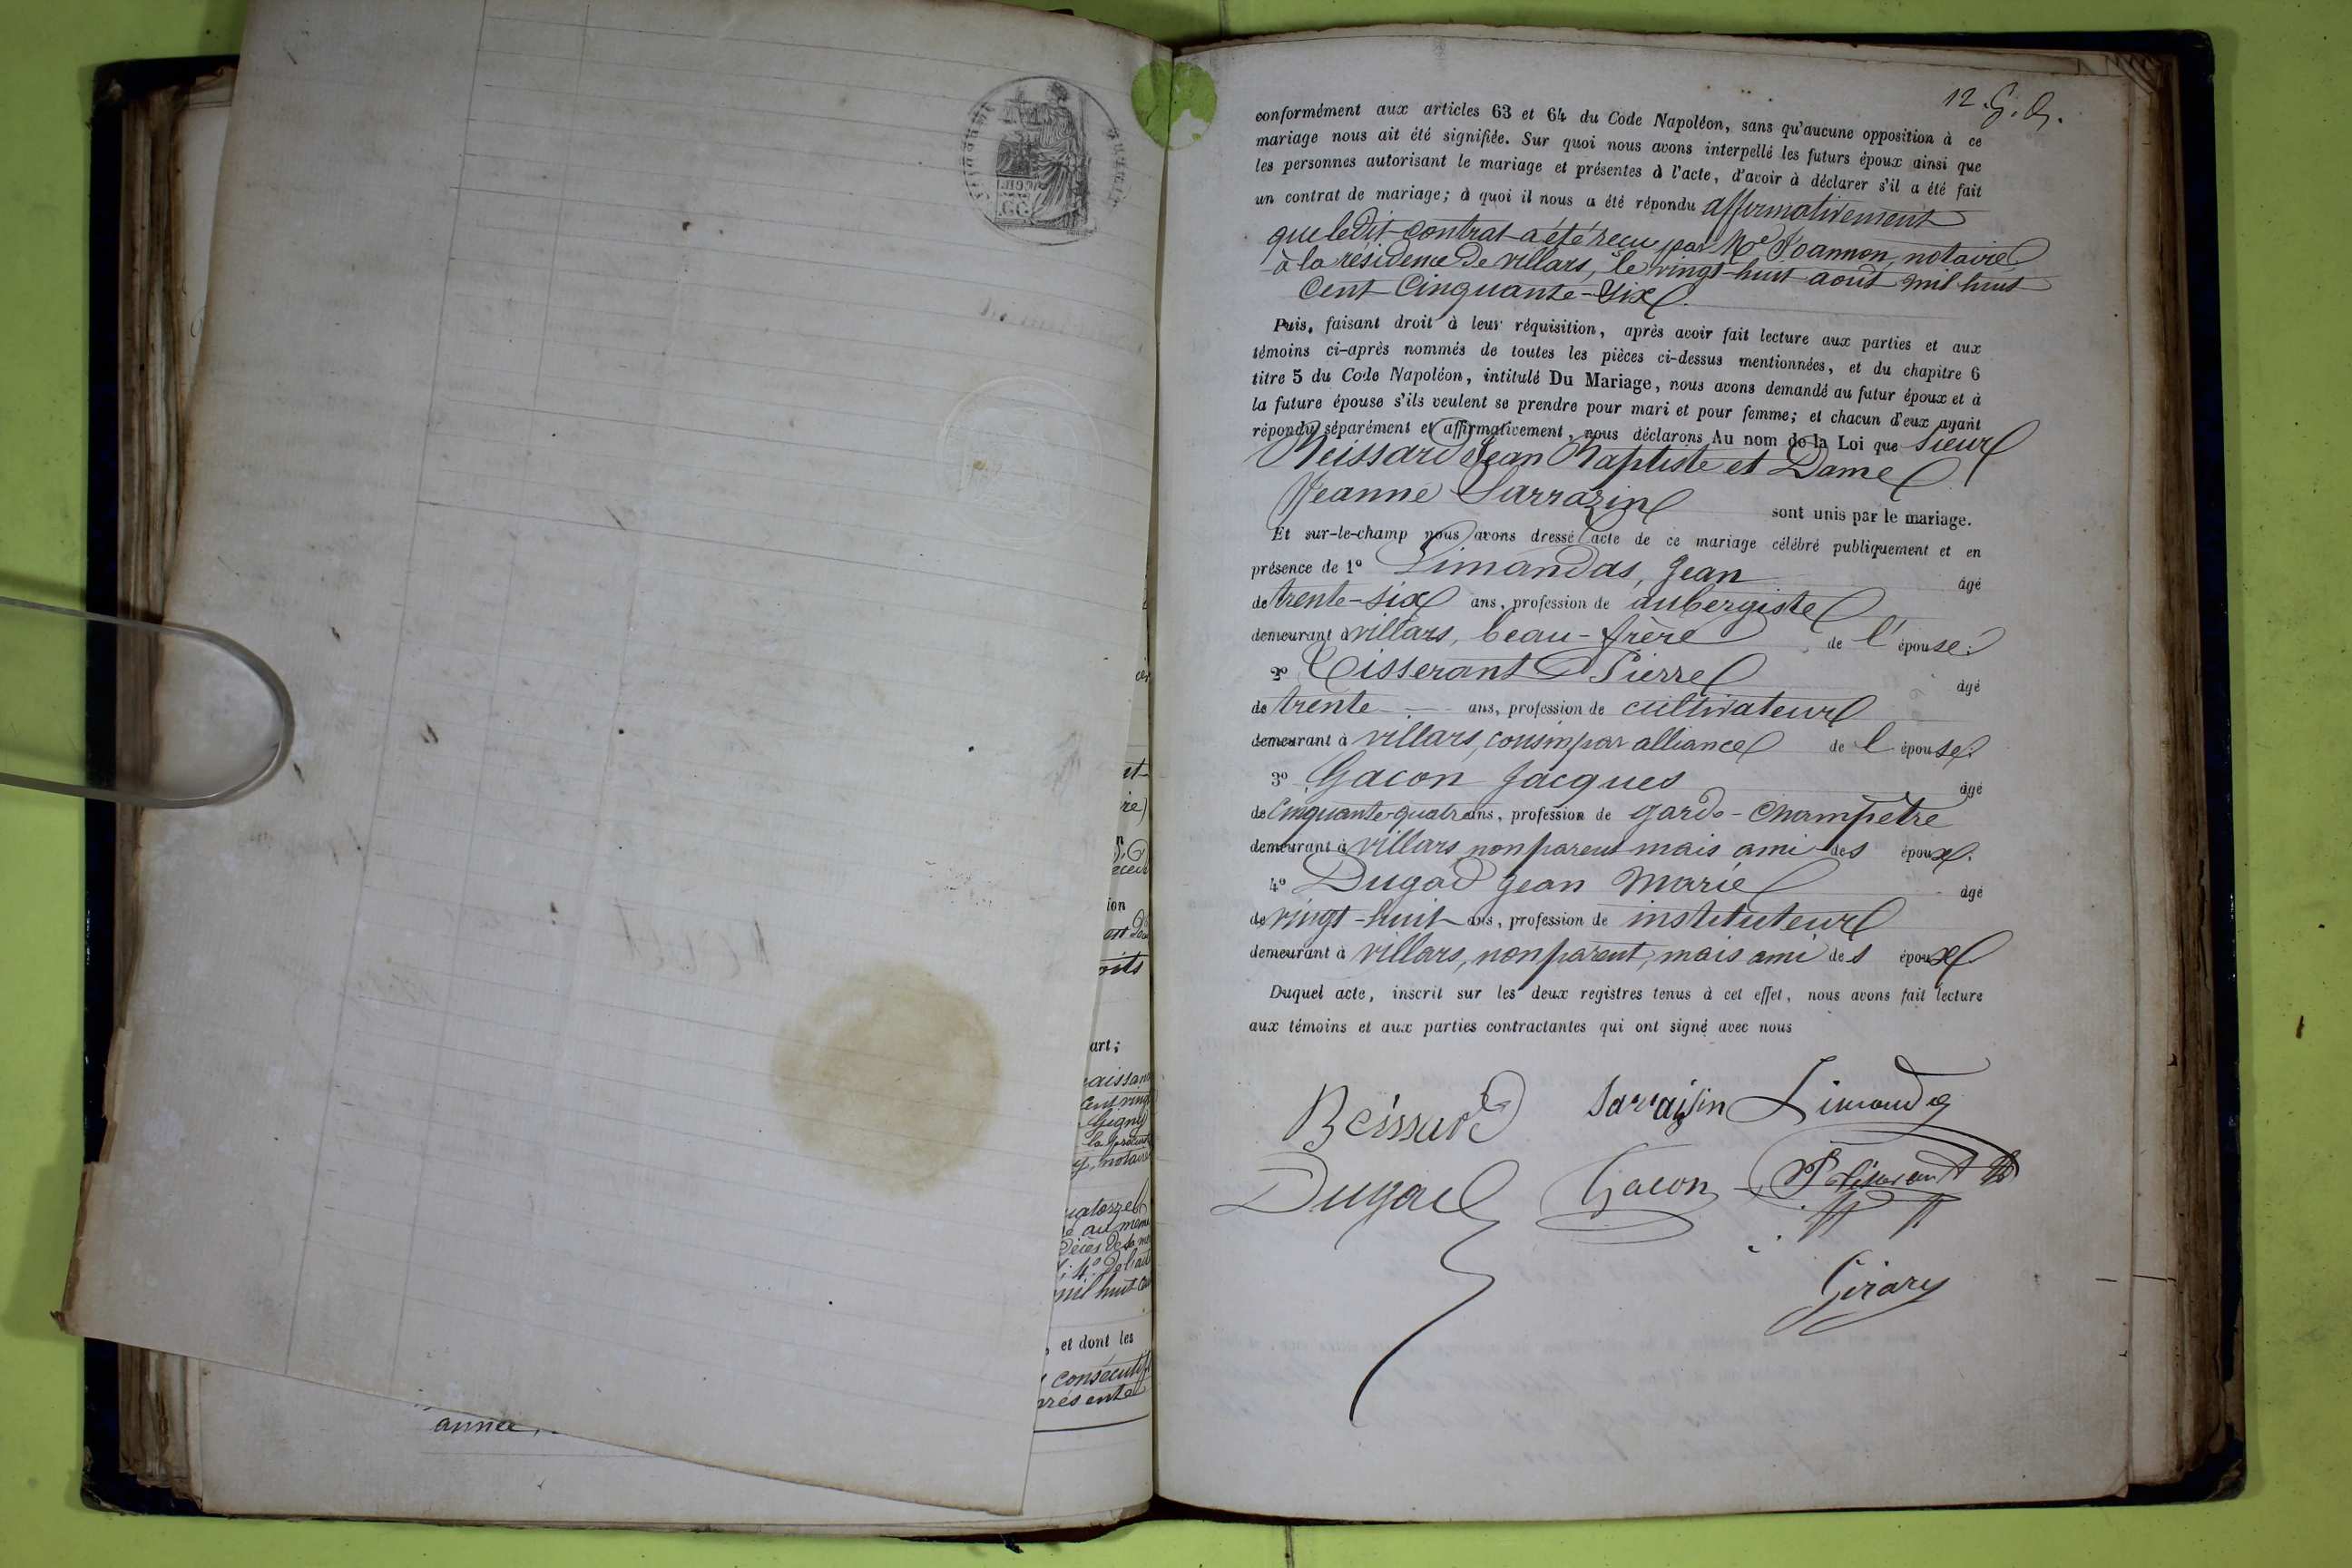 12. G. D.
conformément aux articles 63 et 64 du Code Napoléon, sans qu'aucune opposition à ce
mariage nous ait été signifiée. Sur quoi nous avons interpellé les futurs époux ainsi que
les personnes autorisant le mariage et présentes à l'acte, d'avoir à déclarer s'il a été fait
un contrat de mariage; à quoi il nous a été répondu affirmativement
que ledit contrat a été reçu par Me Joannon, notaire
à la résidence de villars, le vingt-huit août mil huit
Cent Cinquante-Six
Puis, faisant droit à leur réquisition, après avoir fait lecture aux parties et aux
témoins ci-après nommés de toutes les pièces ci-dessus mentionnées, et du chapitre 6
titre 5 du Code Napoléon, intitulé Du Mariage, nous avons demandé au futur époux et à
la future épouse s'ils veulent se prendre pour mari et pour femme; et chacun d'eux ayant
répondu séparément et affirmativement, nous déclarons Au nom de la Loi que Sieur
Beissard Jean Baptiste et Dame
Jeanne Sarrazin sont unis par le mariage.
Et sur-le-champ nous avons dressé l'acte de ce mariage célébré publiquement et en
présence de 1º Limandas, Jean âgé
de trente-six ans, profession de aubergiste
demeurant à villars, beau-frère de l'épouse.
2º Tisserant Pierre âgé
de trente ans, profession de cultivateur
demeurant à villars, cousin par alliance de l'épouse.
3º Gacon Jacques âgé
de Cinquante-quatre ans, profession de garde-Champêtre
demeurant à villars non parent mais ami des époux.
4º Dugad Jean Marie âgé
de vingt-huit ans, profession de instituteur
demeurant à villars, non parent, mais ami des époux
Duquel acte, inscrit sur les deux registres tenus à cet effet, nous avons fait lecture
aux témoins et aux parties contractantes qui ont signé avec nous
Beissard Sarraisin Limandas
Dugad Gacon P Tisserant
Girary
et
ion
art;
notaire
et dont les
consécutif
présente
année,